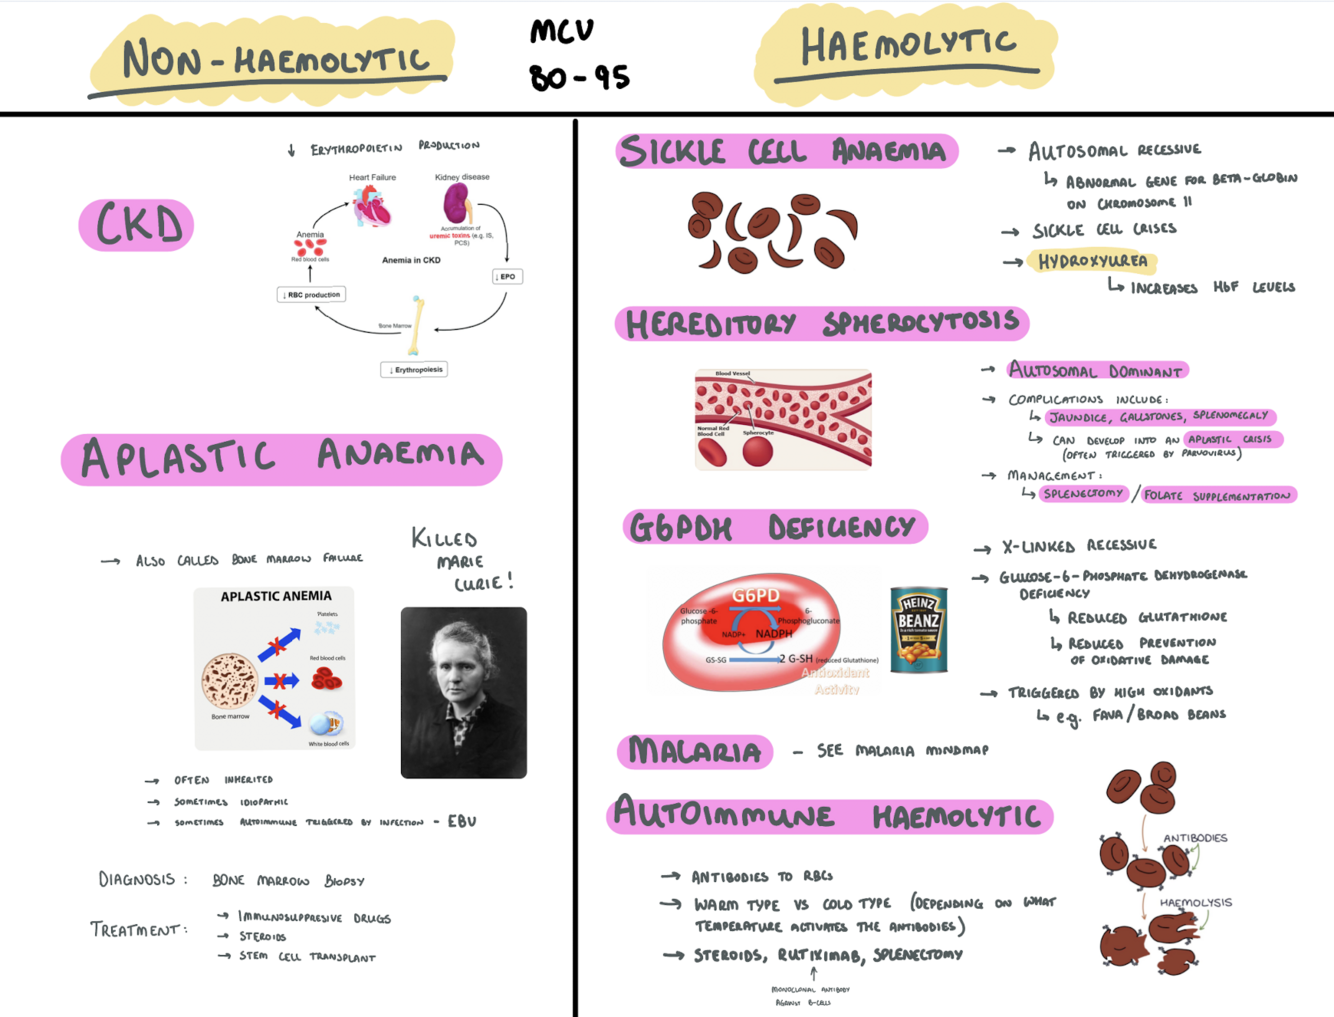 NON-HAEMOLYTIC
MCV
80-95
HAEMOLYTIC
CKD
↓ ERYTHROPOIETIN PRODUCTION
Heart Failure
Kidney disease
Accumulation of
uremic toxins (e.g. IS,
PCS)
Anemia
Red blood cells
Anemia in CKD
↓ EPO
↓ RBC production
Bone Marrow
↓ Erythropoiesis
APLASTIC ANAEMIA
→ ALSO CALLED BONE MARROW FAILURE
KILLED
MARIE
CURIE!
APLASTIC ANEMIA
Platelets
Red blood cells
Bone marrow
White blood cells
→ OFTEN INHERITED
→ SOMETIMES IDIOPATHIC
→ SOMETIMES AUTOIMMUNE TRIGGERED BY INFECTION - EBV
DIAGNOSIS: BONE MARROW BIOPSY
TREATMENT:
→ IMMUNOSUPPRESIVE DRUGS
→ STEROIDS
→ STEM CELL TRANSPLANT
SICKLE CELL ANAEMIA
→ AUTOSOMAL RECESSIVE
↳ ABNORMAL GENE FOR BETA-GLOBIN
ON CHROMOSOME 11
→ SICKLE CELL CRISES
→ HYDROXYUREA
↳ INCREASES HbF LEVELS
HEREDITORY SPHEROCYTOSIS
Blood Vessel
Normal Red
Blood Cell
Spherocyte
→ AUTOSOMAL DOMINANT
→ COMPLICATIONS INCLUDE:
↳ JAUNDICE, GALLSTONES, SPLENOMEGALY
↳ CAN DEVELOP INTO AN APLASTIC CRISIS
(OFTEN TRIGGERED BY PARVOVIRUS)
→ MANAGEMENT:
↳ SPLENECTOMY / FOLATE SUPPLEMENTATION
G6PDH DEFICIENCY
G6PD
Glucose -6-
phosphate
6-
Phosphogluconate
NADP+
NADPH
GS-SG
2 G-SH (reduced Glutathione)
Antioxidant
Activity
HEINZ
BEANZ
→ X-LINKED RECESSIVE
→ GLUCOSE-6-PHOSPHATE DEHYDROGENASE
DEFICIENCY
↳ REDUCED GLUTATHIONE
↳ REDUCED PREVENTION
OF OXIDATIVE DAMAGE
→ TRIGGERED BY HIGH OXIDANTS
↳ e.g. FAVA/BROAD BEANS
MALARIA - SEE MALARIA MINDMAP
AUTOIMMUNE HAEMOLYTIC
→ ANTIBODIES TO RBCs
→ WARM TYPE VS COLD TYPE (DEPENDING ON WHAT
TEMPERATURE ACTIVATES THE ANTIBODIES)
→ STEROIDS, RUTIXIMAB, SPLENECTOMY
↑
MONOCLONAL ANTIBODY
AGAINST B-CELLS
ANTIBODIES
HAEMOLYSIS